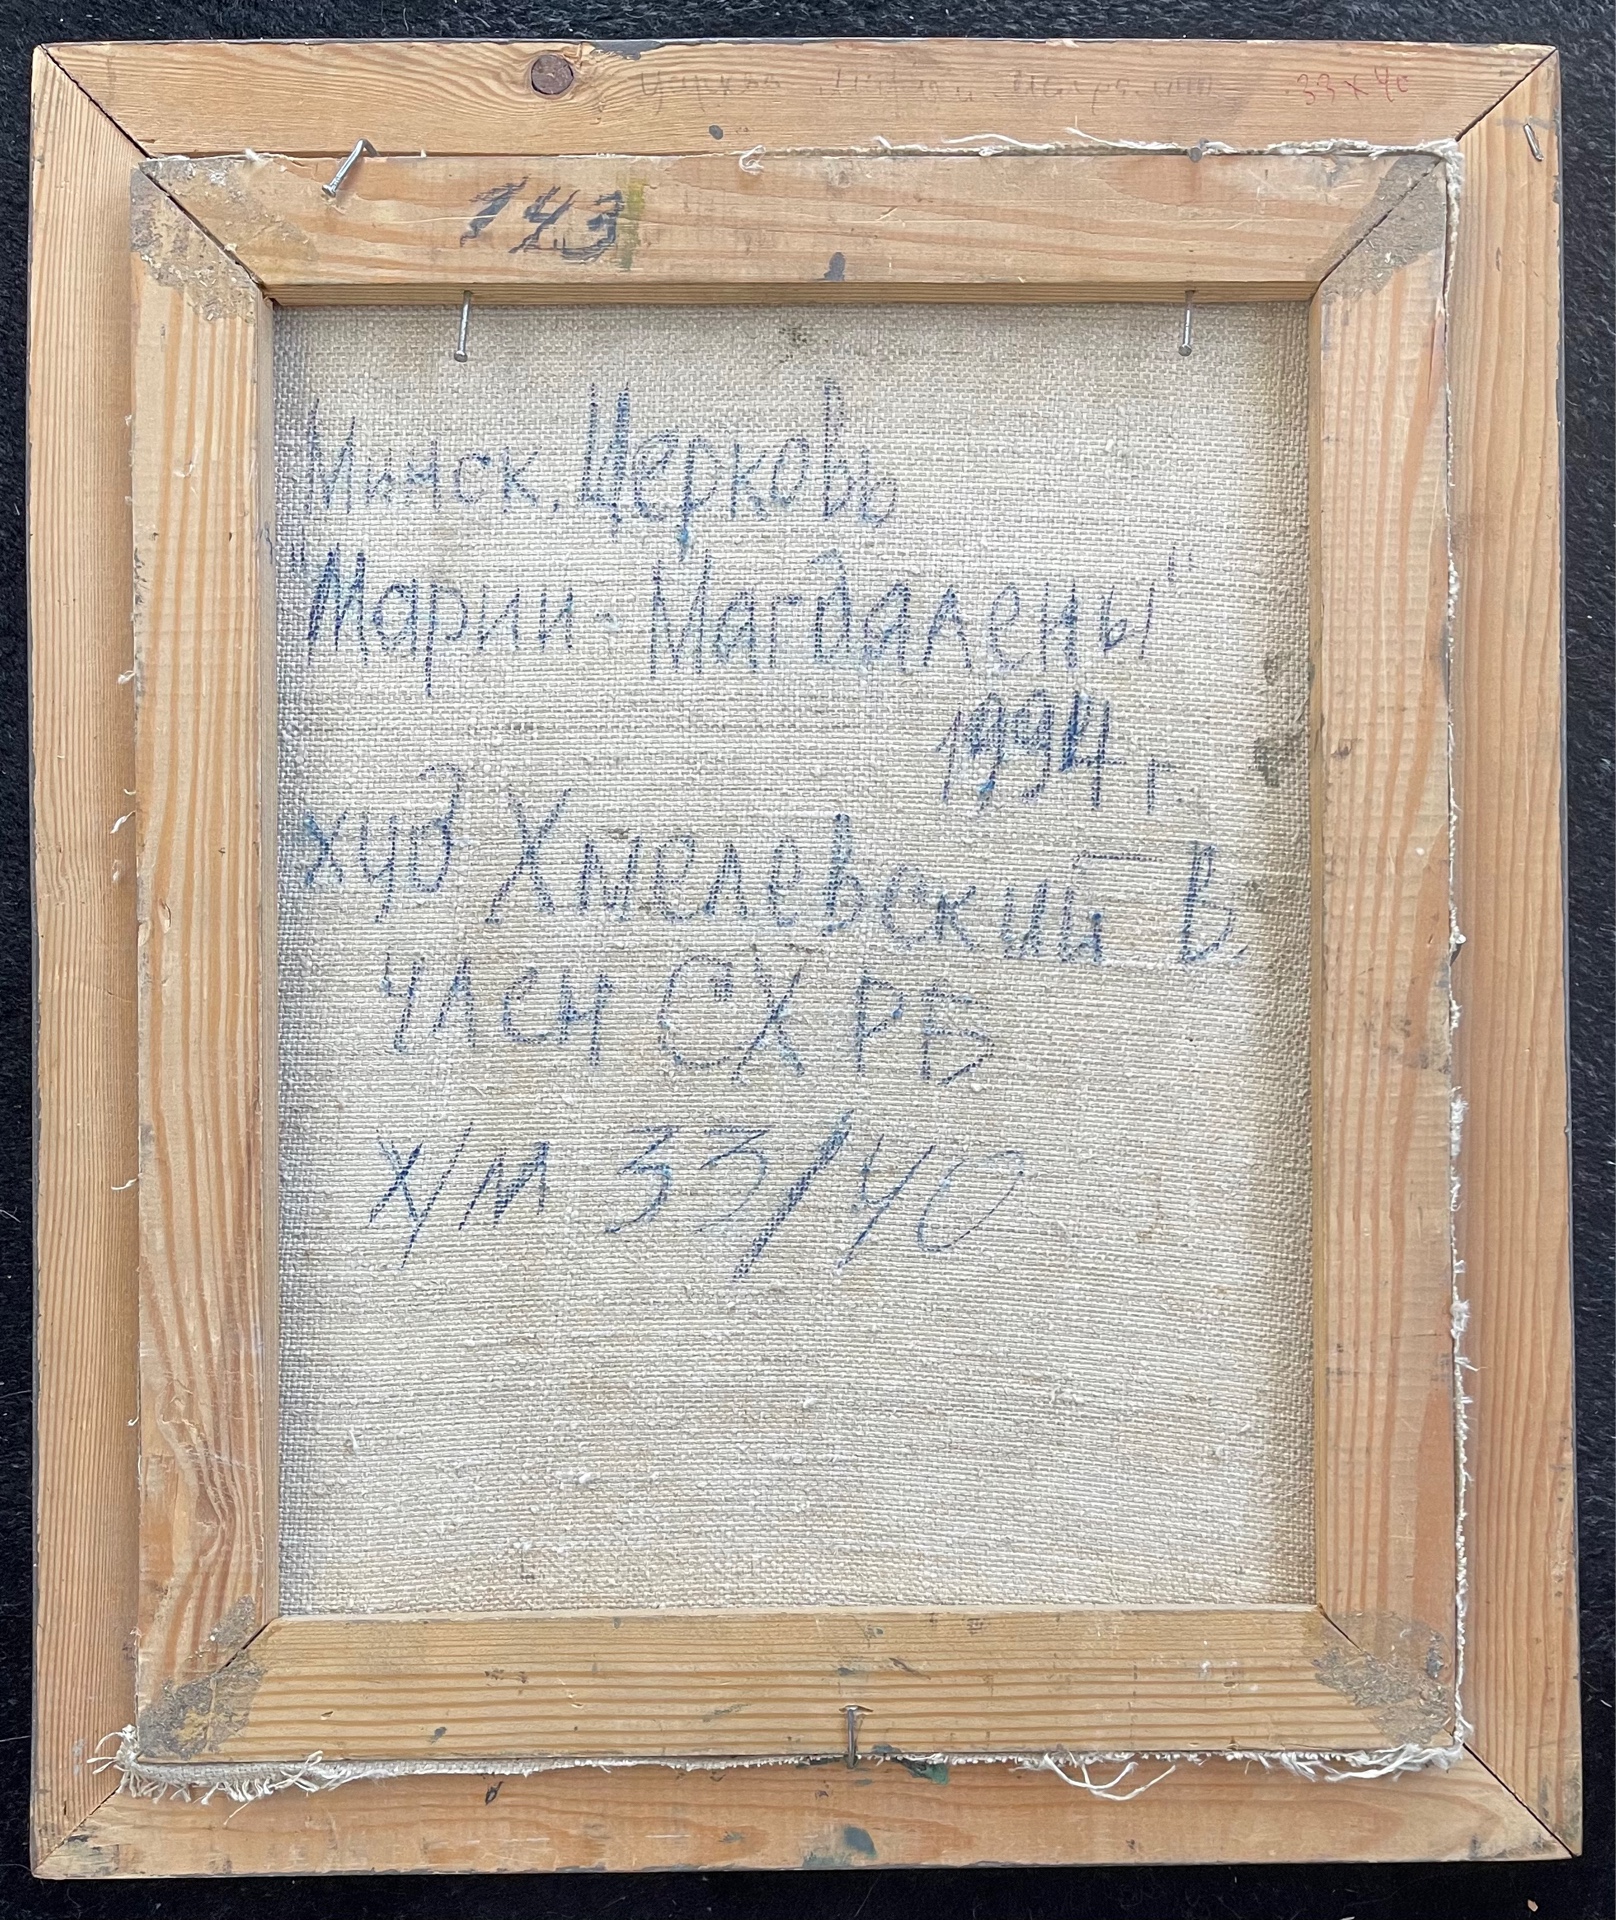 33 x 40
143
Минск. Церковь
"Марии-Магдалены"
1994 г
худ Хмелевский В.
член СХ РБ
х/м 33/40